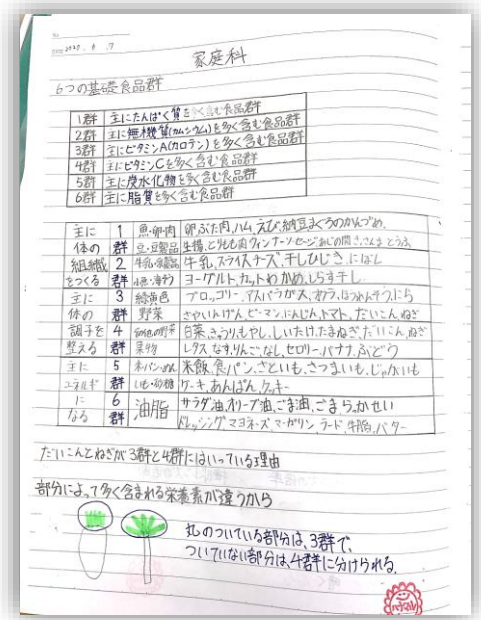 No.
DATE 2020 . 6 . 7
家庭科
6つの基礎食品群
1群 主にたんぱく質を多く含む食品群
2群 主に無機質(カルシウム)を多く含む食品群
3群 主にビタミンA(カロテン)を多く含む食品群
4群 主にビタミンCを多く含む食品群
5群 主に炭水化物を多く含む食品群
6群 主に脂質を多く含む食品群
主に体の組織をつくる
1群 魚・卵・肉 豆・豆製品
卵、ぶた肉、ハム、えび、納豆、まぐろのかんづめ、
とりもも肉、ウィンナーソーセージ、あじの開き、さんま、とうふ
2群 牛乳・乳製品 小魚・海そう
牛乳、スライスチーズ、干しひじき、にぼし
ヨーグルト、カットわかめ、しらす干し
主に体の調子を整える
3群 緑黄色野菜
ブロッコリー、アスパラガス、オクラ、ほうれんそう、にら
さやいんげん、ピーマン、にんじん、トマト、だいこん、ねぎ
4群 その他の野菜 果物
白菜、きゅうり、もやし、しいたけ、たまねぎ、だいこん、ねぎ
レタス、なす、りんご、なし、セロリー、バナナ、ぶどう
主にエネルギーになる
5群 米・パン・めん いも・砂糖
米飯、食パン、さといも、さつまいも、じゃがいも
ケーキ、あんぱん、クッキー
6群 油脂
サラダ油、オリーブ油、ごま油、ごま、らっかせい
ドレッシング、マヨネーズ、マーガリン、ラード、牛脂、バター
だいこんとねぎが3群と4群にはいっている理由
部分によって多く含まれる栄養素が違うから
丸のついている部分は、3群で、
ついていない部分は、4群に分けられる。